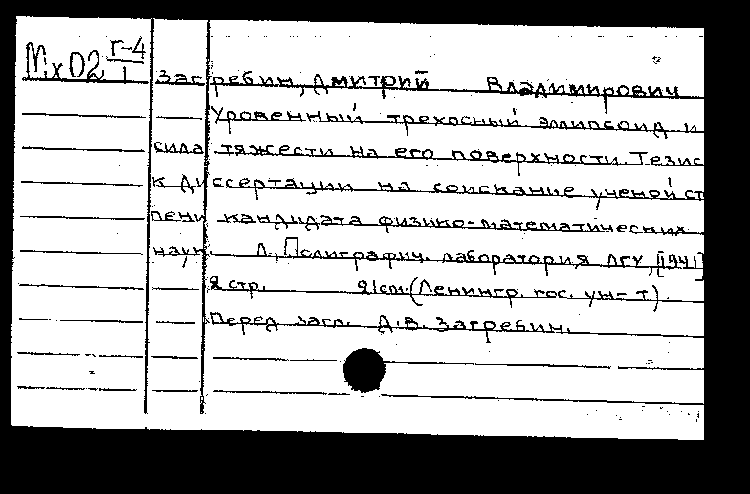 Мх02 Г-4
1
Загребин, Дмитрий Владимирович
Уровенный трехосный эллипсоид и
сила тяжести на его поверхности. Тезис
к диссертации на соискание ученой ст
пени кандидата физико-математических
наук. Л., Полиграфич. лаборатория ЛГУ, [1941]
2 стр. 21см. (Ленингр. гос. ун-т).
Перед загл. Д.В. Загребин.